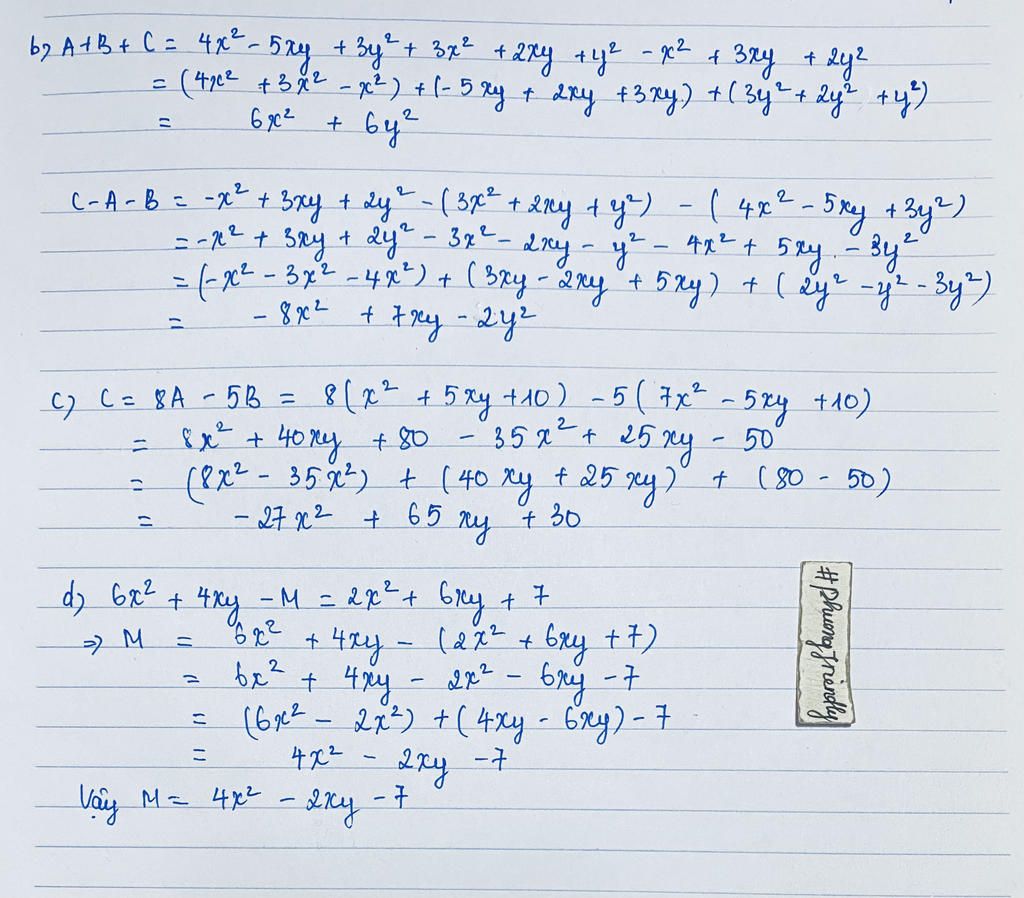 b) A+B+C = 4x² - 5xy + 3y² + 3x² + 2xy + y² - x² + 3xy + 2y²
= (4x² + 3x² - x²) + (-5xy + 2xy + 3xy) + (3y² + 2y² + y²)
= 6x² + 6y²
C-A-B = -x² + 3xy + 2y² - (3x² + 2xy + y²) - (4x² - 5xy + 3y²)
= -x² + 3xy + 2y² - 3x² - 2xy - y² - 4x² + 5xy - 3y²
= (-x² - 3x² - 4x²) + (3xy - 2xy + 5xy) + (2y² - y² - 3y²)
= - 8x² + 7xy - 2y²
c) C = 8A - 5B = 8(x² + 5xy + 10) - 5(7x² - 5xy + 10)
= 8x² + 40xy + 80 - 35x² + 25xy - 50
= (8x² - 35x²) + (40xy + 25xy) + (80 - 50)
= - 27x² + 65xy + 30
d) 6x² + 4xy - M = 2x² + 6xy + 7
⇒ M = 6x² + 4xy - (2x² + 6xy + 7)
= 6x² + 4xy - 2x² - 6xy - 7
= (6x² - 2x²) + (4xy - 6xy) - 7
= 4x² - 2xy - 7
Vậy M = 4x² - 2xy - 7
#phuongfriendly